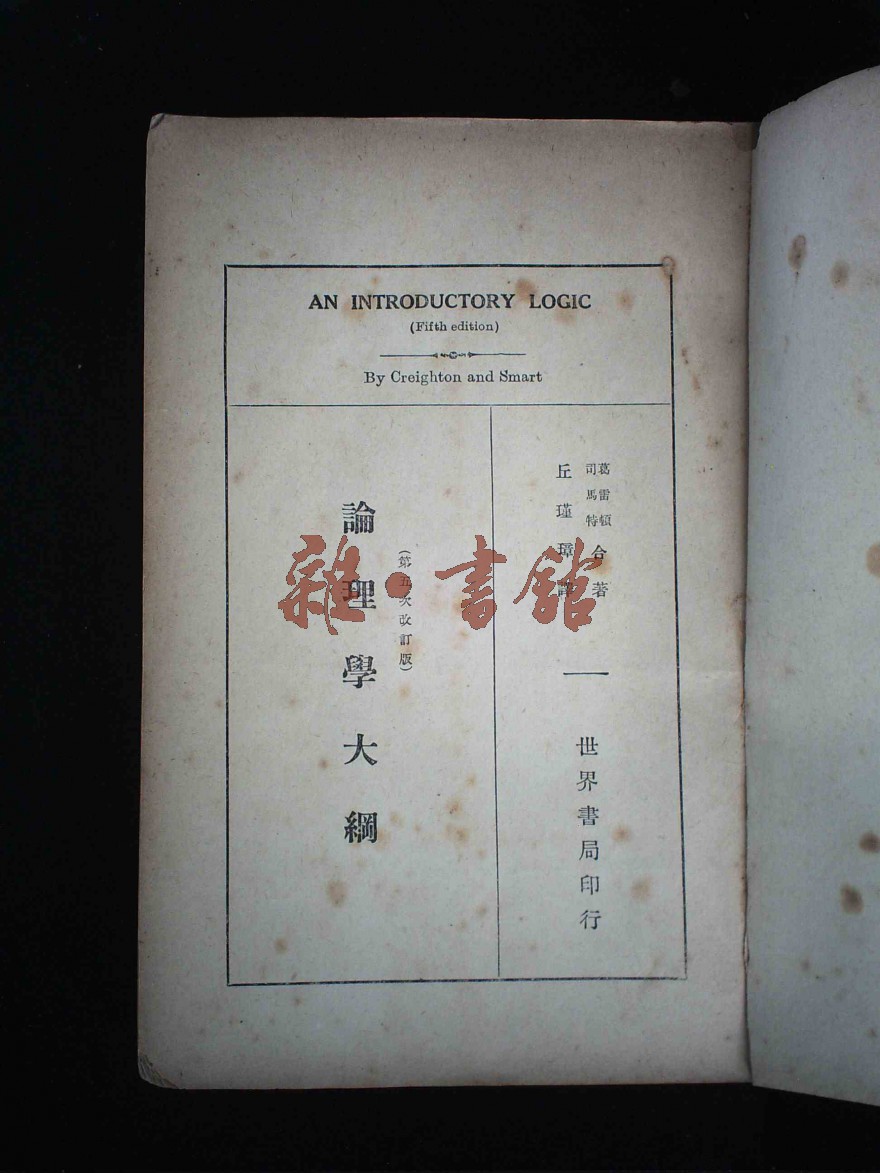 AN INTRODUCTORY LOGIC
(Fifth edition)
By Creighton and Smart
葛雷頓
司馬特
合著
丘瑾璋譯
世界書局印行
(第五次改訂版)
論理學大綱
雜·書館